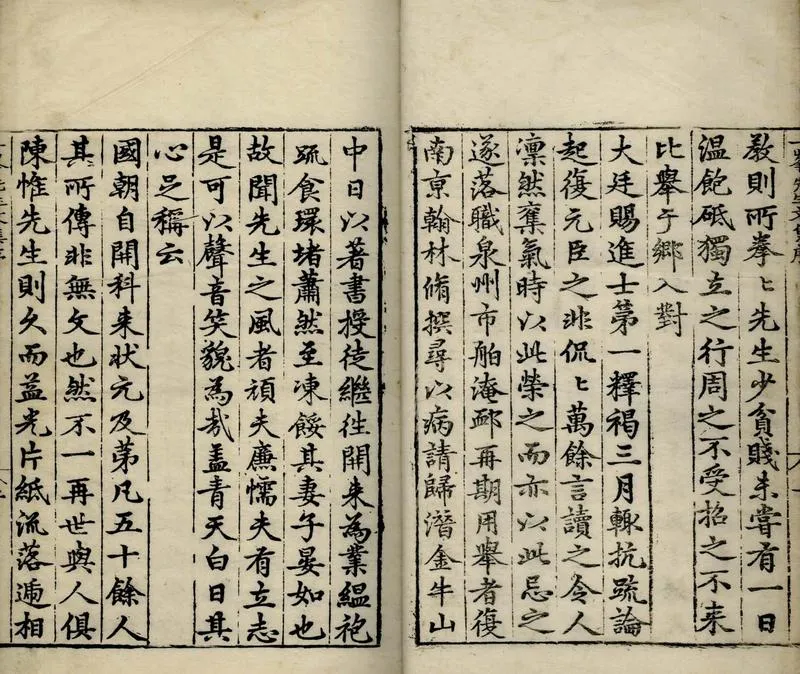 教則所拳〻先生少貧賤未嘗有一日
溫飽砥獨立之行周之不受招之不来
比舉于郷入對
大廷賜進士第一釋褐三月輙抗疏論
起復元臣之非侃〻萬餘言讀之令人
凛然奪氣時以此榮之而亦以此忌之
遂落職泉州市舶淹䣛再期用舉者復
南京翰林脩撰尋以病請歸潛金牛山
中日以著書授徒繼徃開来為業緼袍
疏食環堵蕭然至凍餒其妻子晏如也
故聞先生之風者頑夫廉懦夫有立志
是可以聲音笑貌為㢤盖青天白日其
心足稱云
國朝自開科来状元及苐凡五十餘人
其所傳非無文也然不一再世與人俱
陳惟先生則久而益光片紙流落遞相